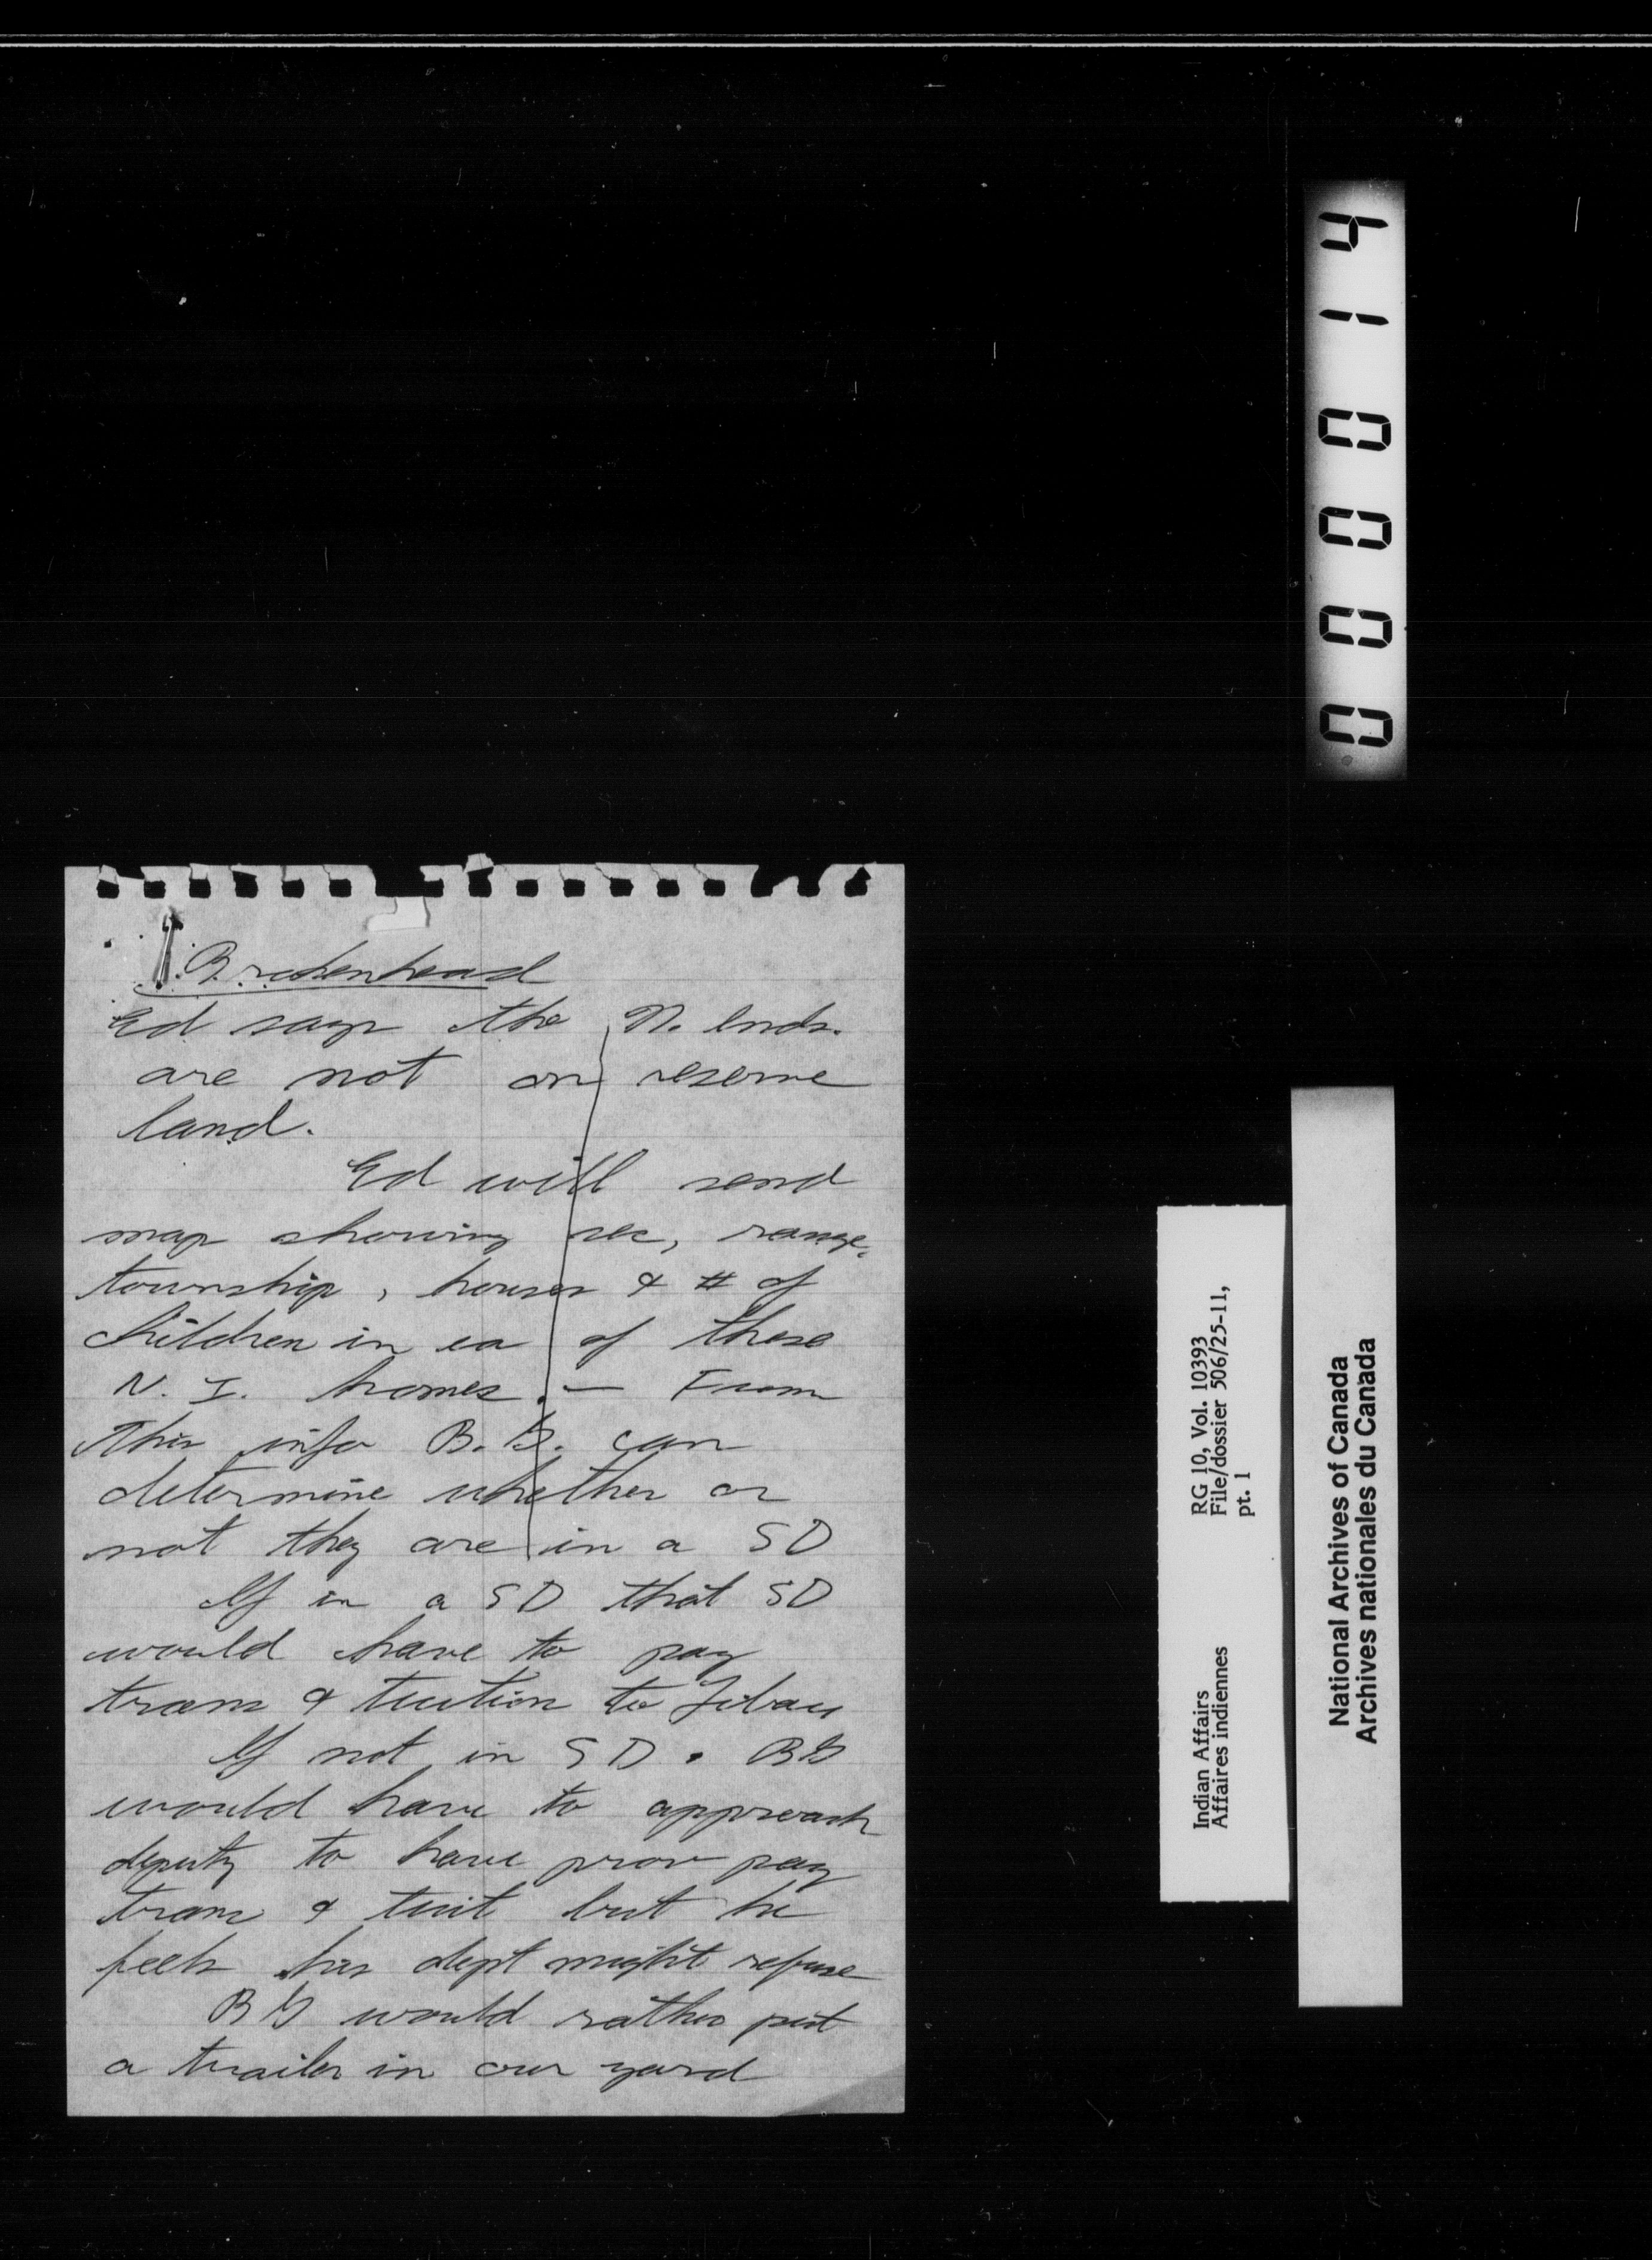 Brokenhead
Ed says the N. Inds.
are not on reserve
land.
Ed will send
map showing sec, range,
township, houses & # of
children in ea of these
N. I. homes. — From
this info B.G. can
determine whether or
not they are in a SD
If in a SD that SD
would have to pay
trans & tuition to
If not in SD. BG
would have to approach
deputy to have prov pay
trans & tuit but he
feels his dept might refuse
BG would rather put
a trailer in our yard
000014
RG 10, Vol. 10393
File/dossier 506/25-11,
pt. 1
Indian Affairs
Affaires indiennes
National Archives of Canada
Archives nationales du Canada